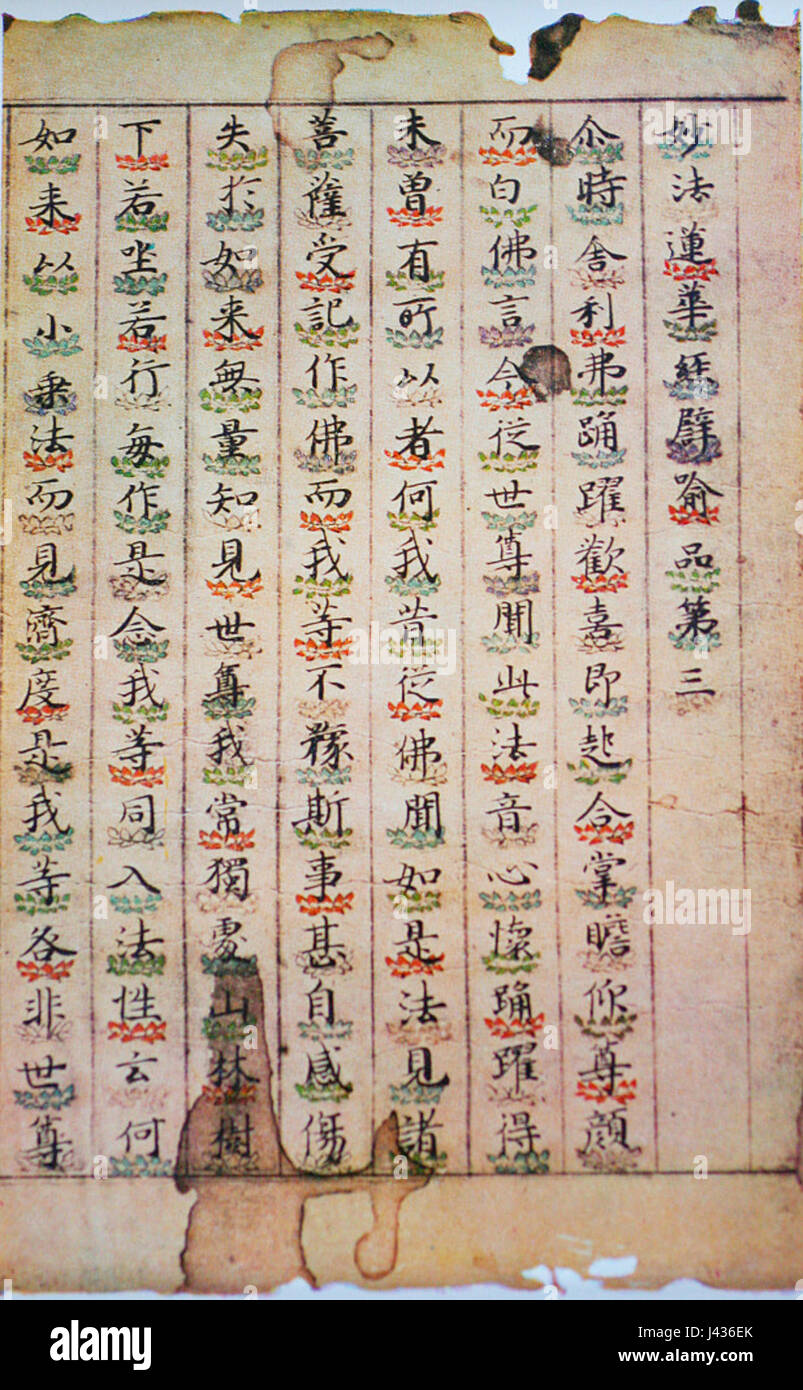 妙法蓮華經譬喻品第三
尒時舎利弗踊躍歡喜即起合掌瞻仰尊顔
而白佛言今從世尊聞此法音心懷踊躍得
未曽有所以者何我昔從佛聞如是法見諸
菩薩受記作佛而我等不豫斯事甚自感傷
失扵如来無量知見世尊我常獨處山林樹
下若坐若行每作是念我等同入法性云何
如来以小乗法而見濟度是我等各非世尊
alamy
Image ID: J436EK
www.alamy.com